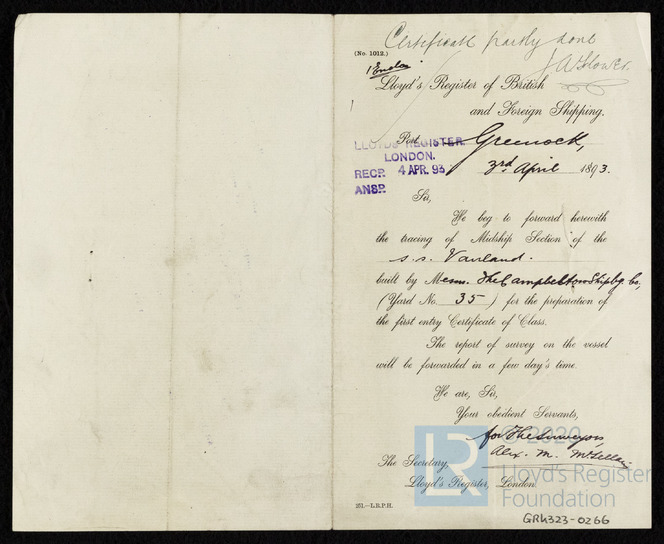 Certificate partly done
(No. 1012.)
1 Enclo
Lloyd's Register of British
and Foreign Shipping.
Port Greenock,
LLOYDS REGISTER.
LONDON.
RECD. 4 APR. 93
ANSD.
3rd April 1893.
Sir,
We beg to forward herewith
the tracing of Midship Section of the
s.s. Vanland.
built by Messrs. The Campbeltown Shipbg. Co,
(Yard No. 35) for the preparation of
the first entry Certificate of Class.
The report of survey on the vessel
will be forwarded in a few day's time.
We are, Sir,
Your obedient Servants,
for The Surveyors,
Alex. M.
The Secretary,
Lloyd's Register, London.
251.—L.B.P.H.
LR
© 2020
Lloyd's Register
Foundation
GRK323-0266